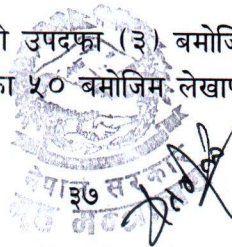 उपदफा (३) बमोजि
५० बमोजिम लेखाप
नेपाल सरकार
३७